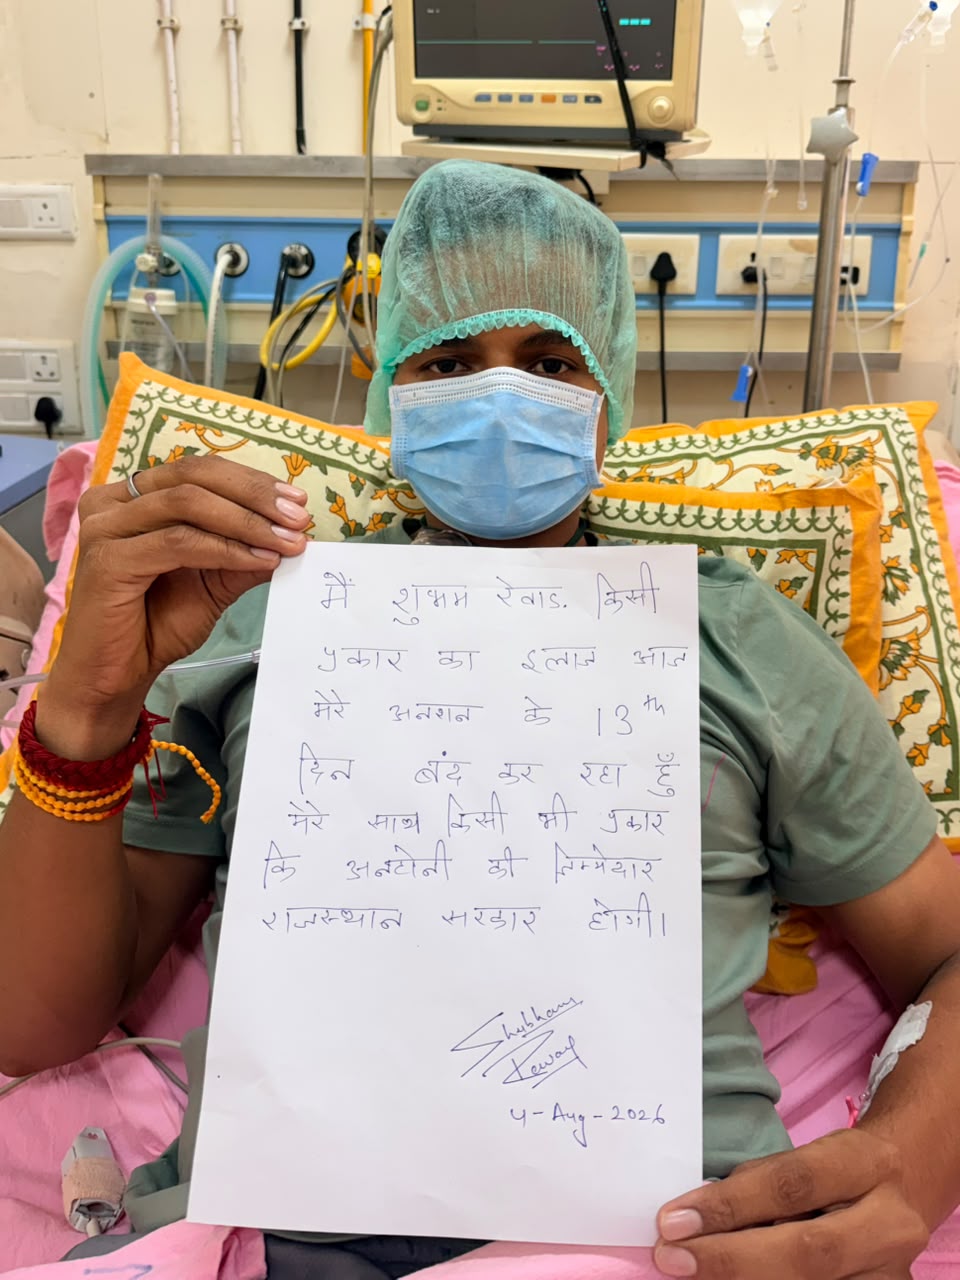 मैं शुभम रेवाड़. किसी
प्रकार का इलाज आज
मेरे अनशन के 13th
दिन बंद कर रहा हूँ
मेरे साथ किसी भी प्रकार
कि अनहोनी की जिम्मेदार
राजस्थान सरकार होगी।
Shubham
Rewad
4-Aug-2026